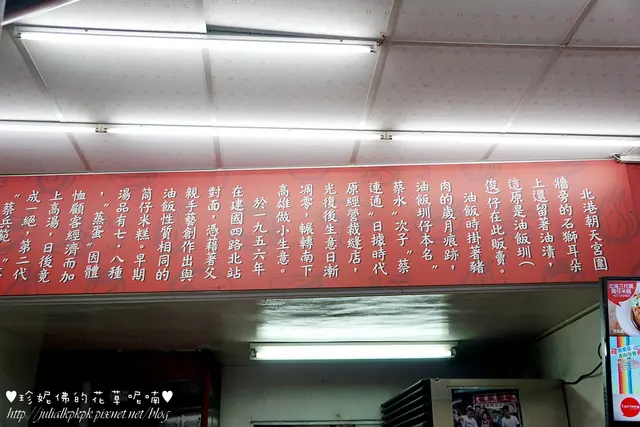 北港朝天宮圍
牆旁的石獅耳朵
上還留著油漬，
這原是油飯圳（
俊）仔在此販賣。
油飯時掛著豬
肉的歲月痕跡，
油飯圳仔本名“
蔡水”次子“蔡
連通”日據時代
原經營裁縫店，
光復後生意日漸
凋零，輾轉南下
高雄做小生意。
於一九五六年
在建國四路北站
對面，憑藉著父
親手藝創作出與
油飯性質相同的
筒仔米糕，早期
湯品有七、八種
，“蒸蛋”因體
恤顧客經濟而加
上高湯，日後竟
成一絕，第二代
“蔡兵範”
♥珍妮佛的花草呢喃♥
http://julialkpkpk.pixnet.net/blog